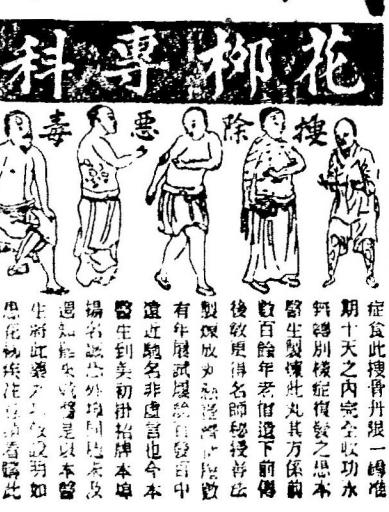 花柳專科
搜除惡毒
症食此搜骨丹限一禮准
期十天之內完全收功永
無轉別樣症復發之患本
醫生製煉此丸其方係前
數百餘年老祖遺下前傳
後敎更得名師秘授善法
製煉放丸濟世經數
有年屢試屢驗百發百中
遠近馳名非虛言也今本
醫生到美初掛招牌本埠
揚名誠恐外埠同胞未及
週知失是以本醫
生將此藥之功效說明如
患花柳疾症請看醫此